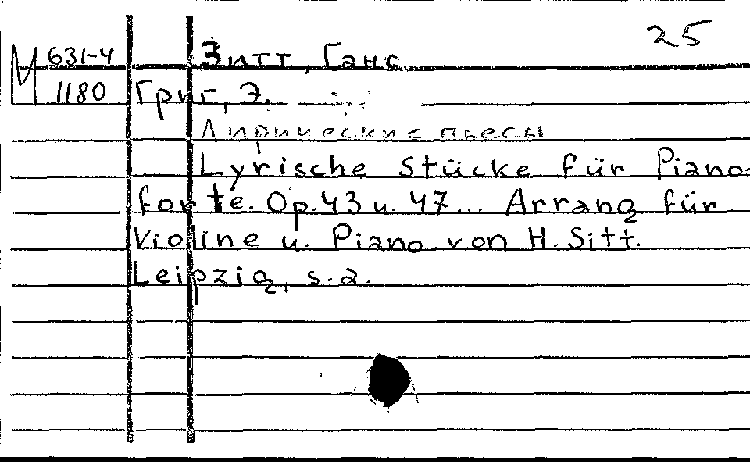 25
М 631-4
1180
Зитт, Ганс.
Григ, Э.
Лирические пьесы
Lyrische Stücke für Piano-
forte. Op. 43 u. 47... Arrang für
Violine u. Piano von H. Sitt.
Leipzig, s. a.